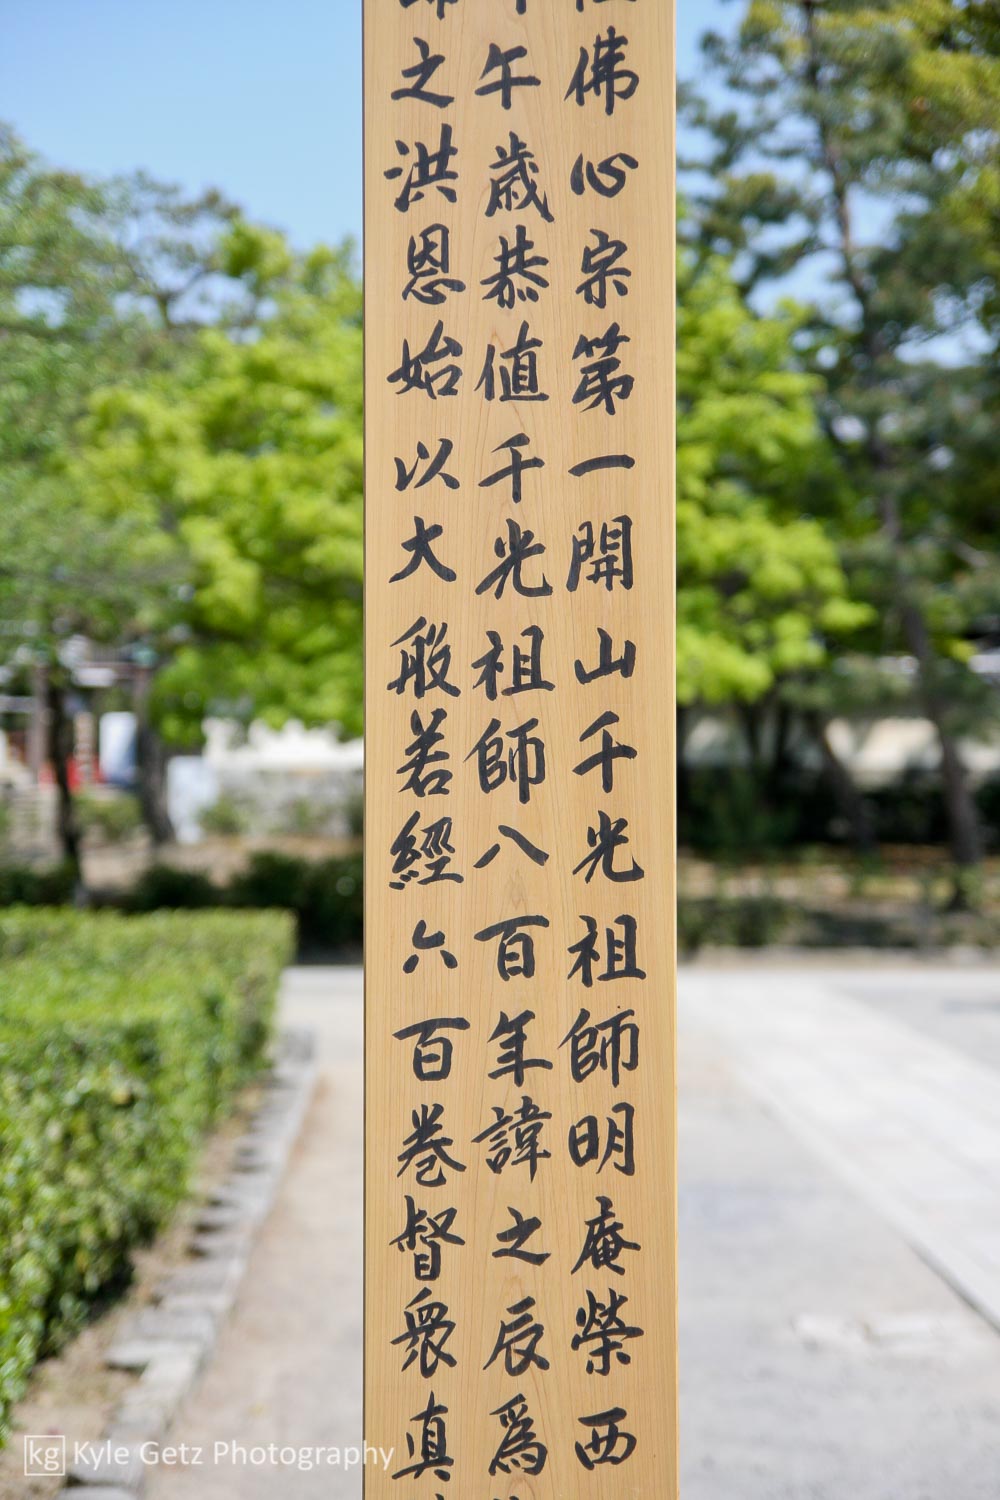 佛心宗第一開山千光祖師明庵榮西
午歳恭値千光祖師八百年諱之辰爲
之洪恩始以大般若經六百巻督衆真
kg Kyle Getz Photography